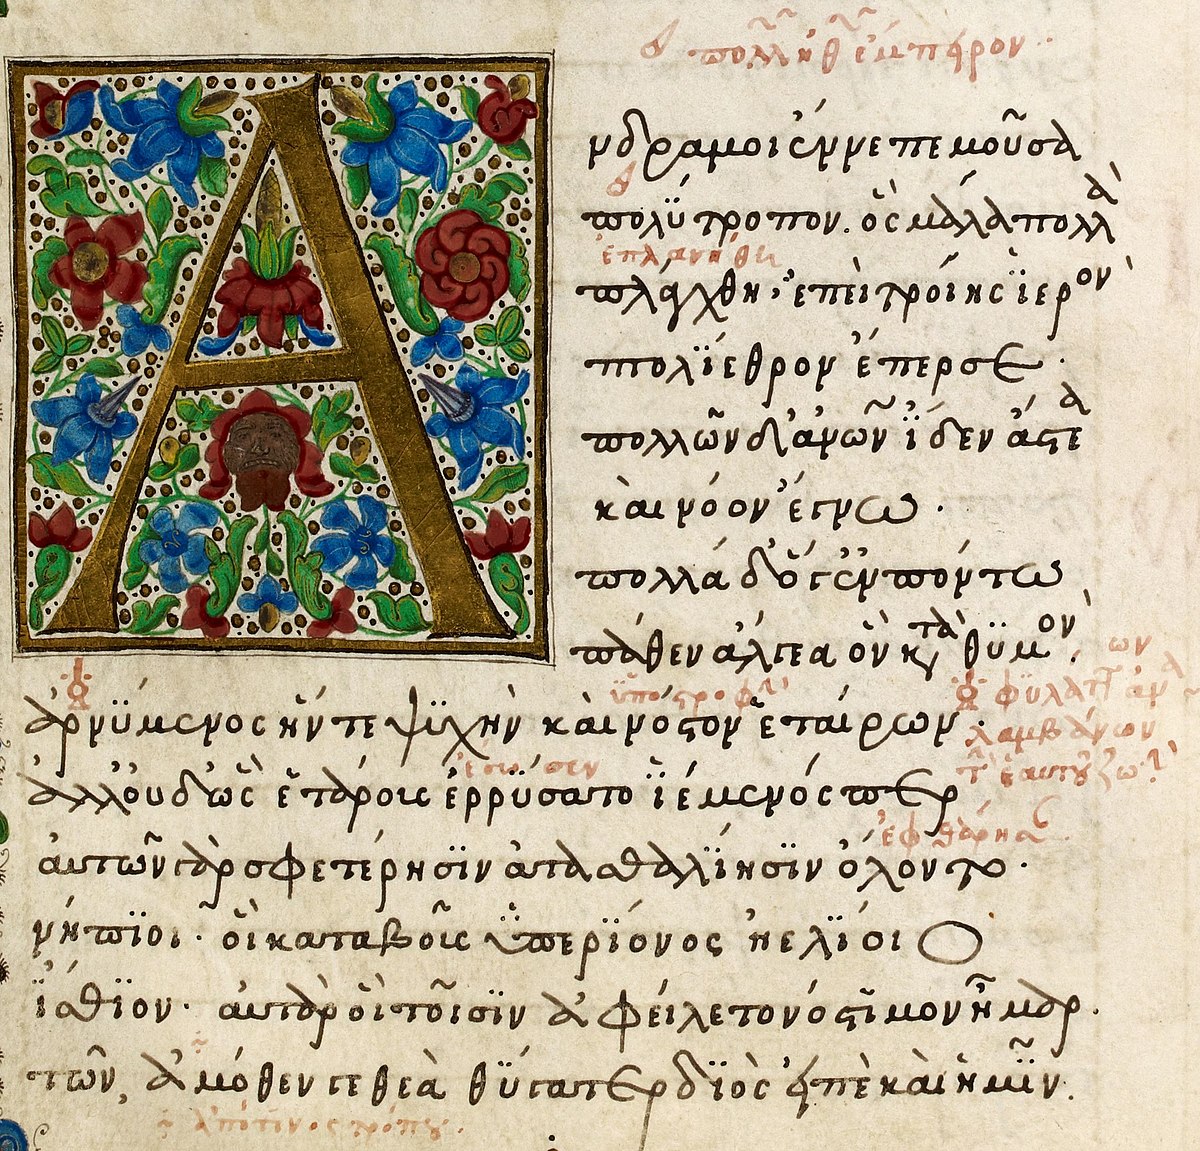 πολλὴν ἐμπείρον
Ἄνδρα μοι ἔννεπε μοῦσα
πολύτροπον. ὃς μάλα πολλὰ
ἐπλανήθη
πλάγχθη, ἐπεὶ τροίης ἱερὸν
πτολίεθρον ἔπερσε.
πολλῶν δ' ἀνθρώπων ἴδεν ἄστεα
καὶ νόον ἔγνω.
πολλὰ δ' ὅγ' ἐν πόντῳ
πάθεν ἄλγεα ὃν κατὰ θυμόν.
ὑποστροφὴν
φυλάττων
ἀρνύμενος ἥν τε ψυχὴν καὶ νόστον ἑταίρων.
λαμβάνων
ἔσωσεν
ἀλλ' οὐδ' ὣς ἑτάροις ἐρρύσατο ἱέμενός περ
ἐφθάρησαν
αὐτῶν γὰρ σφετέρησιν ἀτασθαλίησιν ὄλοντο.
νήπιοι. οἳ κατὰ βοῦς ὑπερίονος ἠελίοιο
ἤσθιον. αὐτὰρ ὁ τοῖσιν ἀφείλετο νόστιμον ἦμαρ.
τῶν, ἀμόθεν γε θεὰ θύγατερ διὸς εἰπὲ καὶ ἡμῖν.
ἀπό τινος τρόπου.